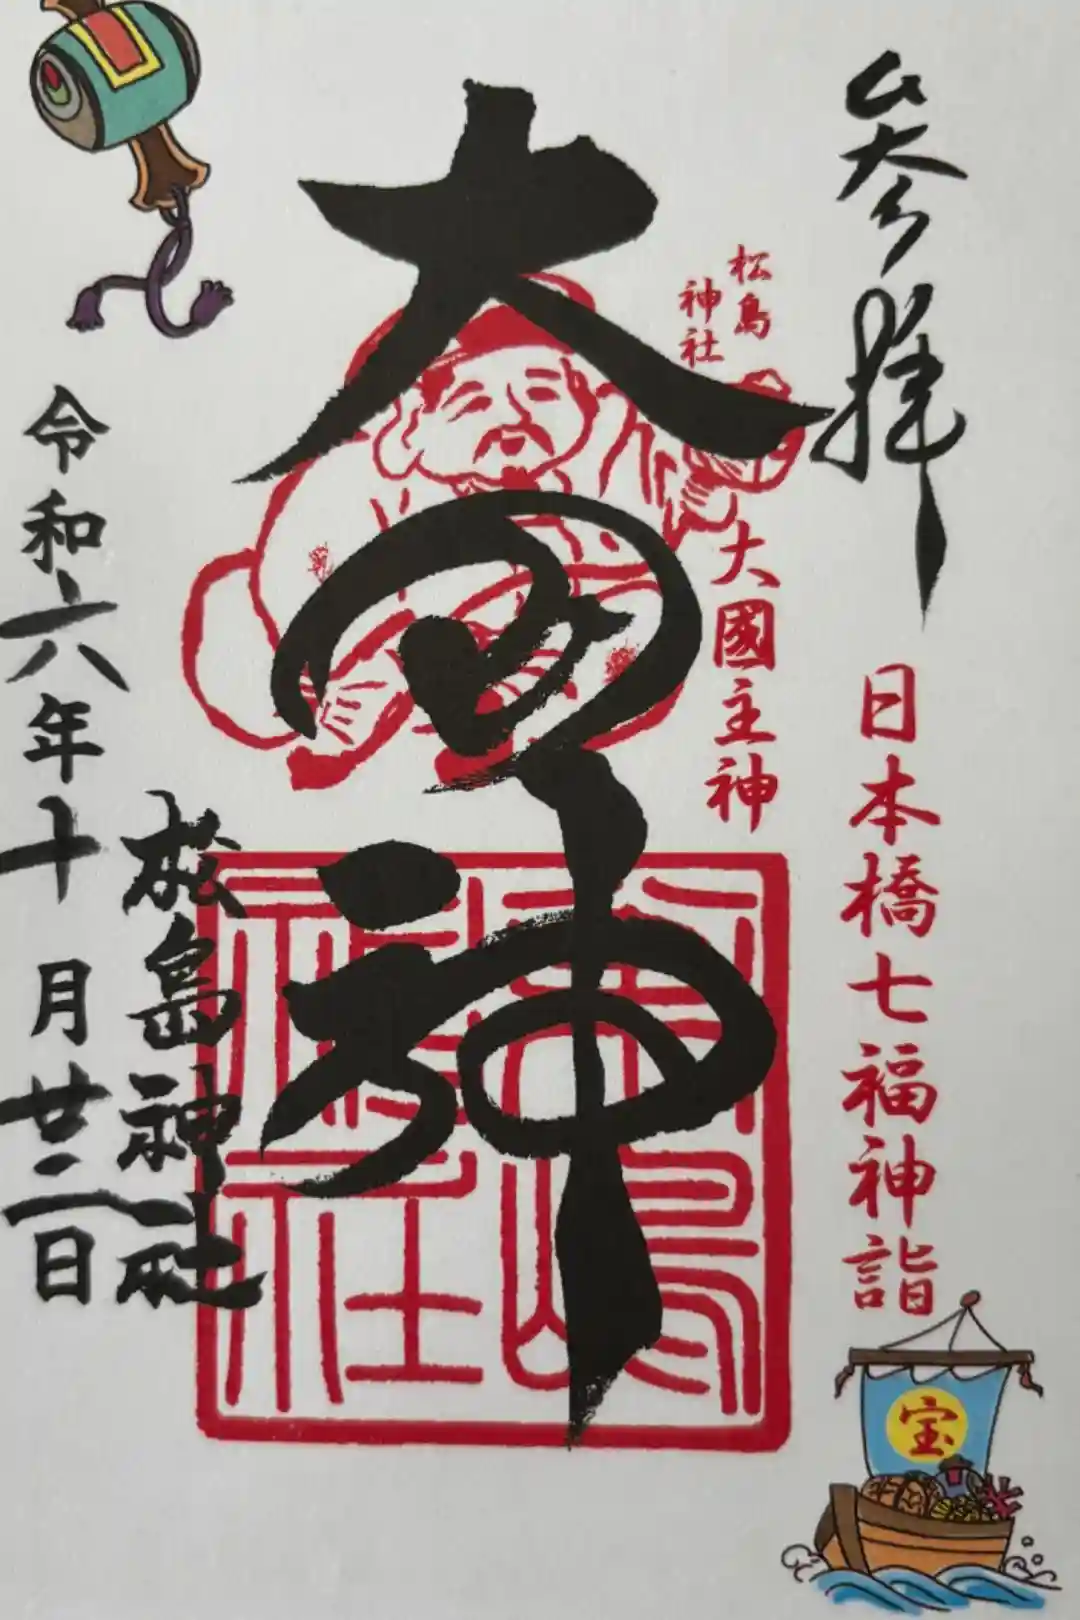 參拝
日本橋七福神詣
宝
松島
神社
大國主神
大黒神
松島神社
令和六年十月廿二日